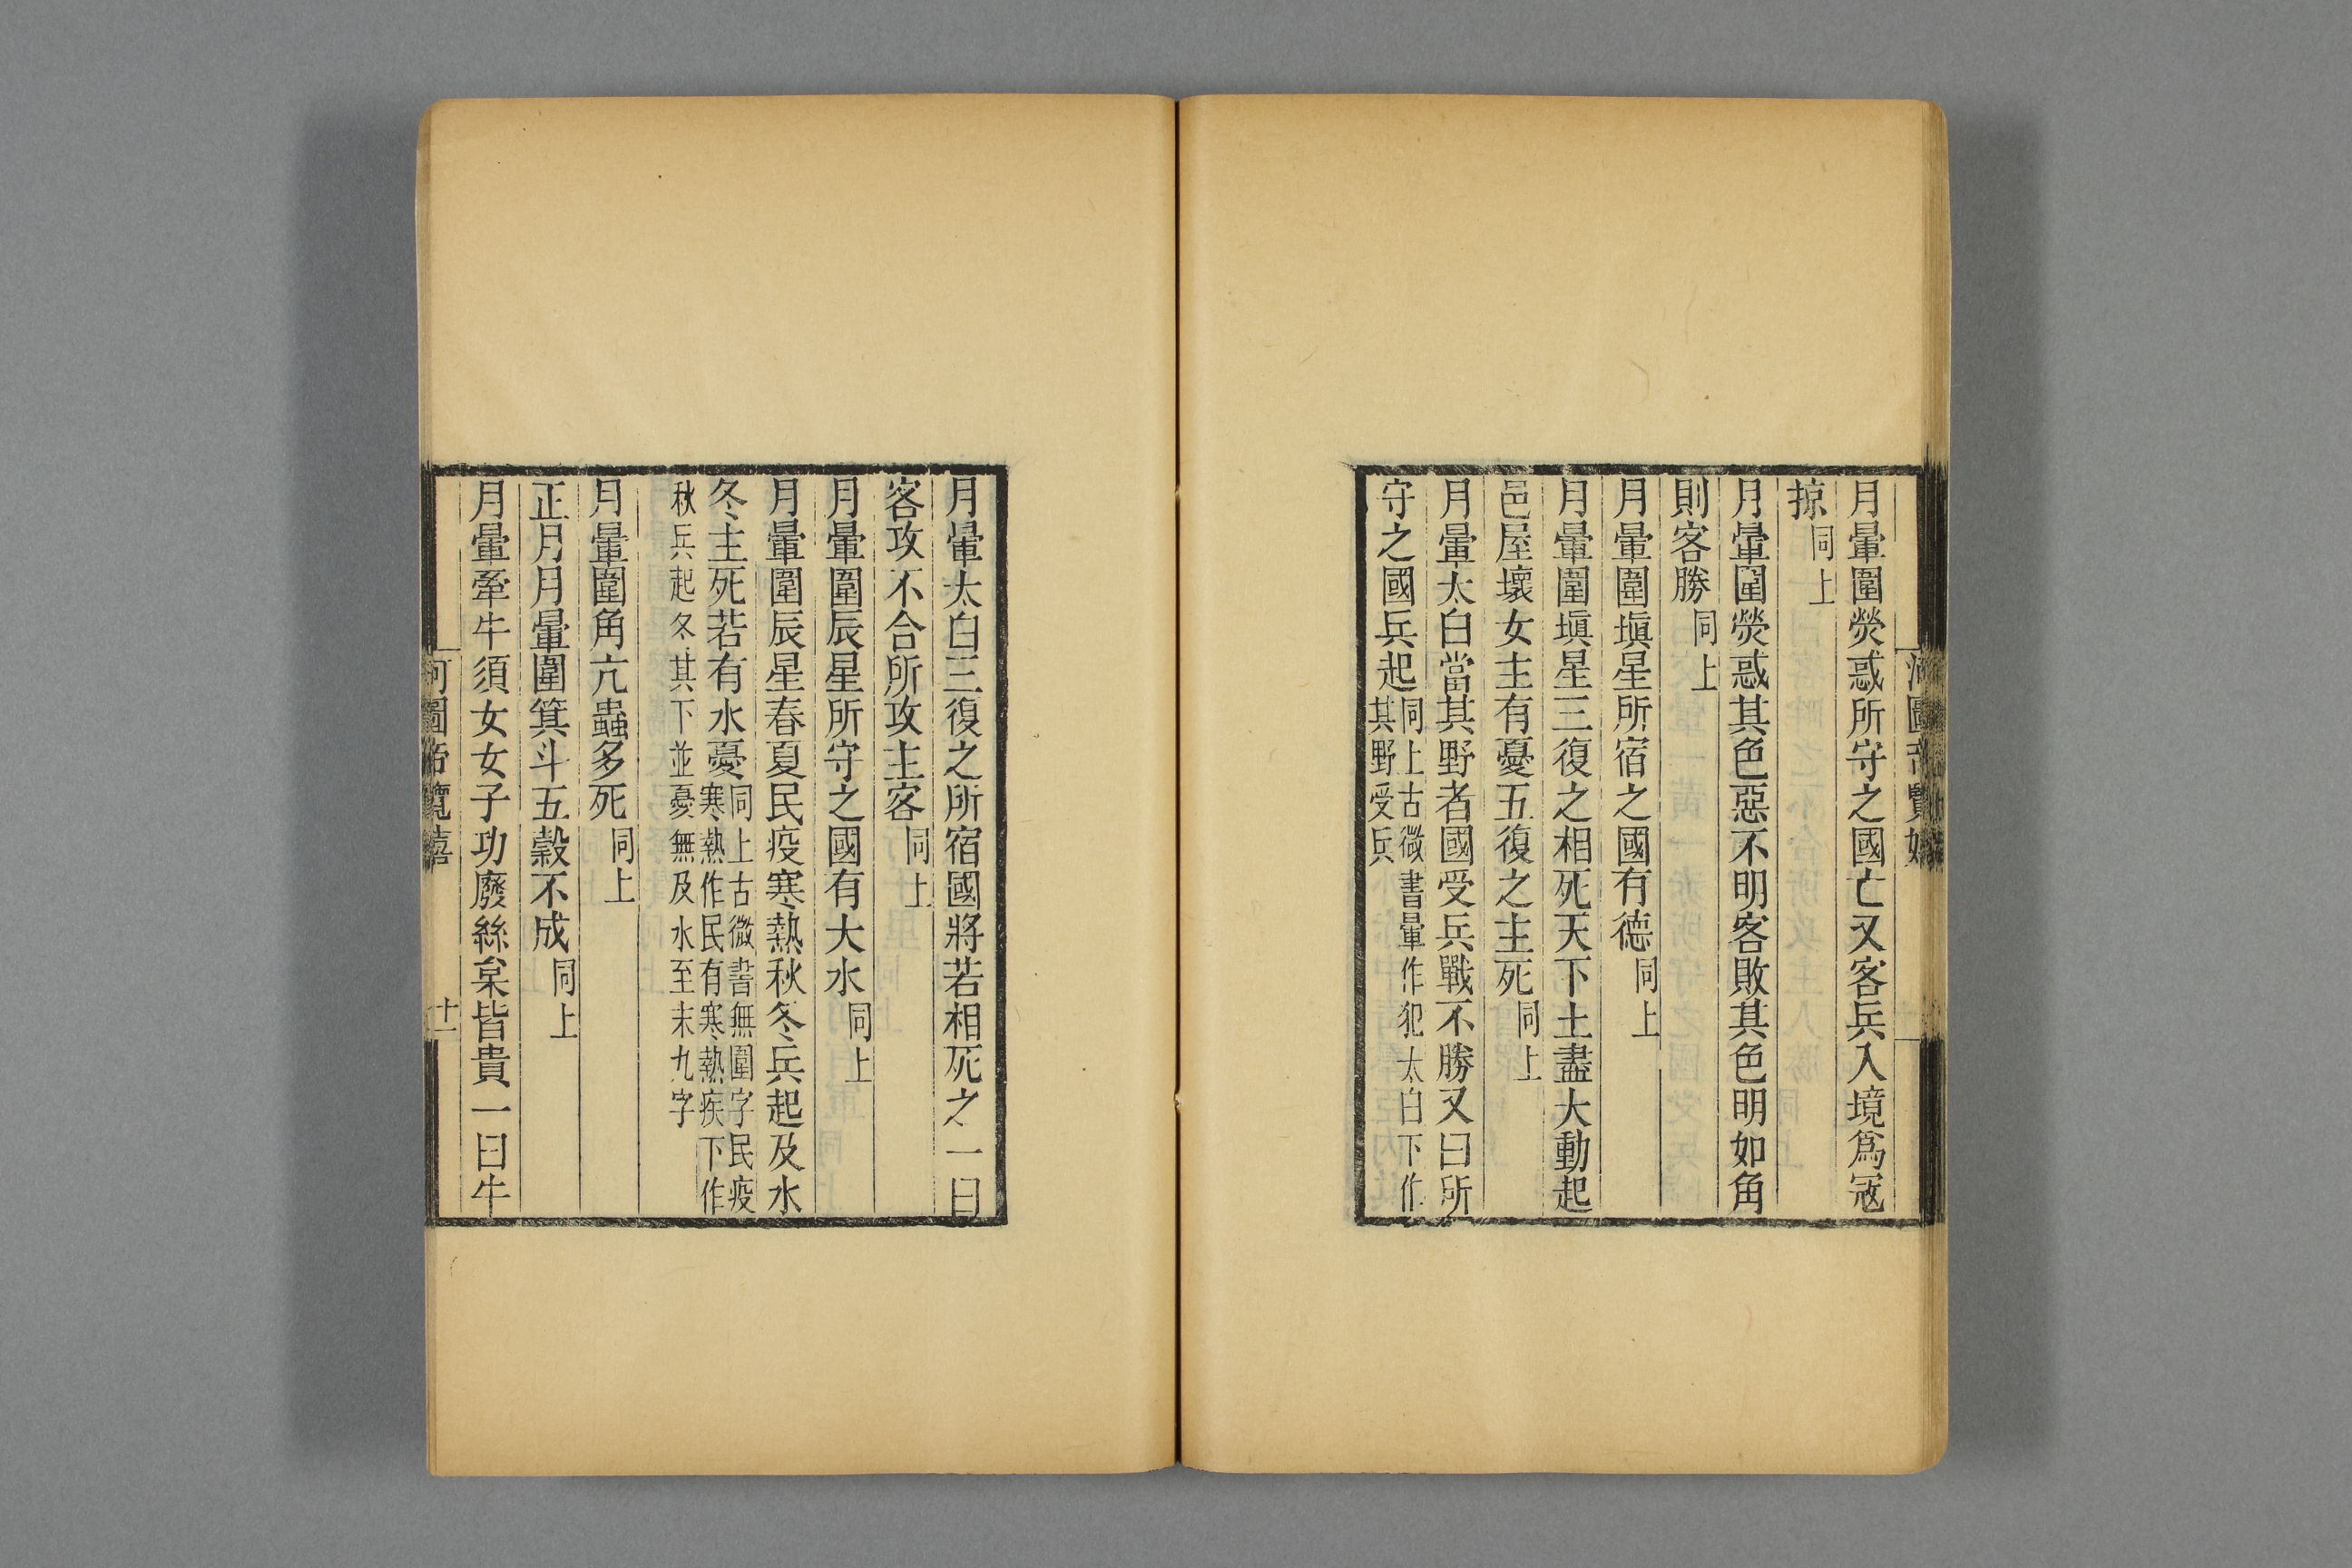 月暈圍熒惑所守之國亡又客兵入境爲寇
掠同上
月暈圍熒惑其色惡不明客敗其色明如角
則客勝同上
月暈圍塡星所宿之國有德同上
月暈圍塡星三復之相死天下土盡大動起
邑屋壞女主有憂五復之主死同上
月暈太白當其野者國受兵戰不勝又曰所
守之國兵起同上古微書暈作犯太白下作
其野受兵
月暈太白三復之所宿國將若相死之一曰
客攻不合所攻主客同上
月暈圍辰星所守之國有大水同上
月暈圍辰星春夏民疫寒熱秋冬兵起及水
冬主死若有水憂同上古微書無圍字民疫
寒熱作民有寒熱疾下作
秋兵起冬其下並憂無及水至末九字
月暈圍角亢蟲多死同上
正月月暈圍箕斗五穀不成同上
月暈牽牛須女女子功廢絲枲皆貴一曰牛
河圖帝覽嬉
十一